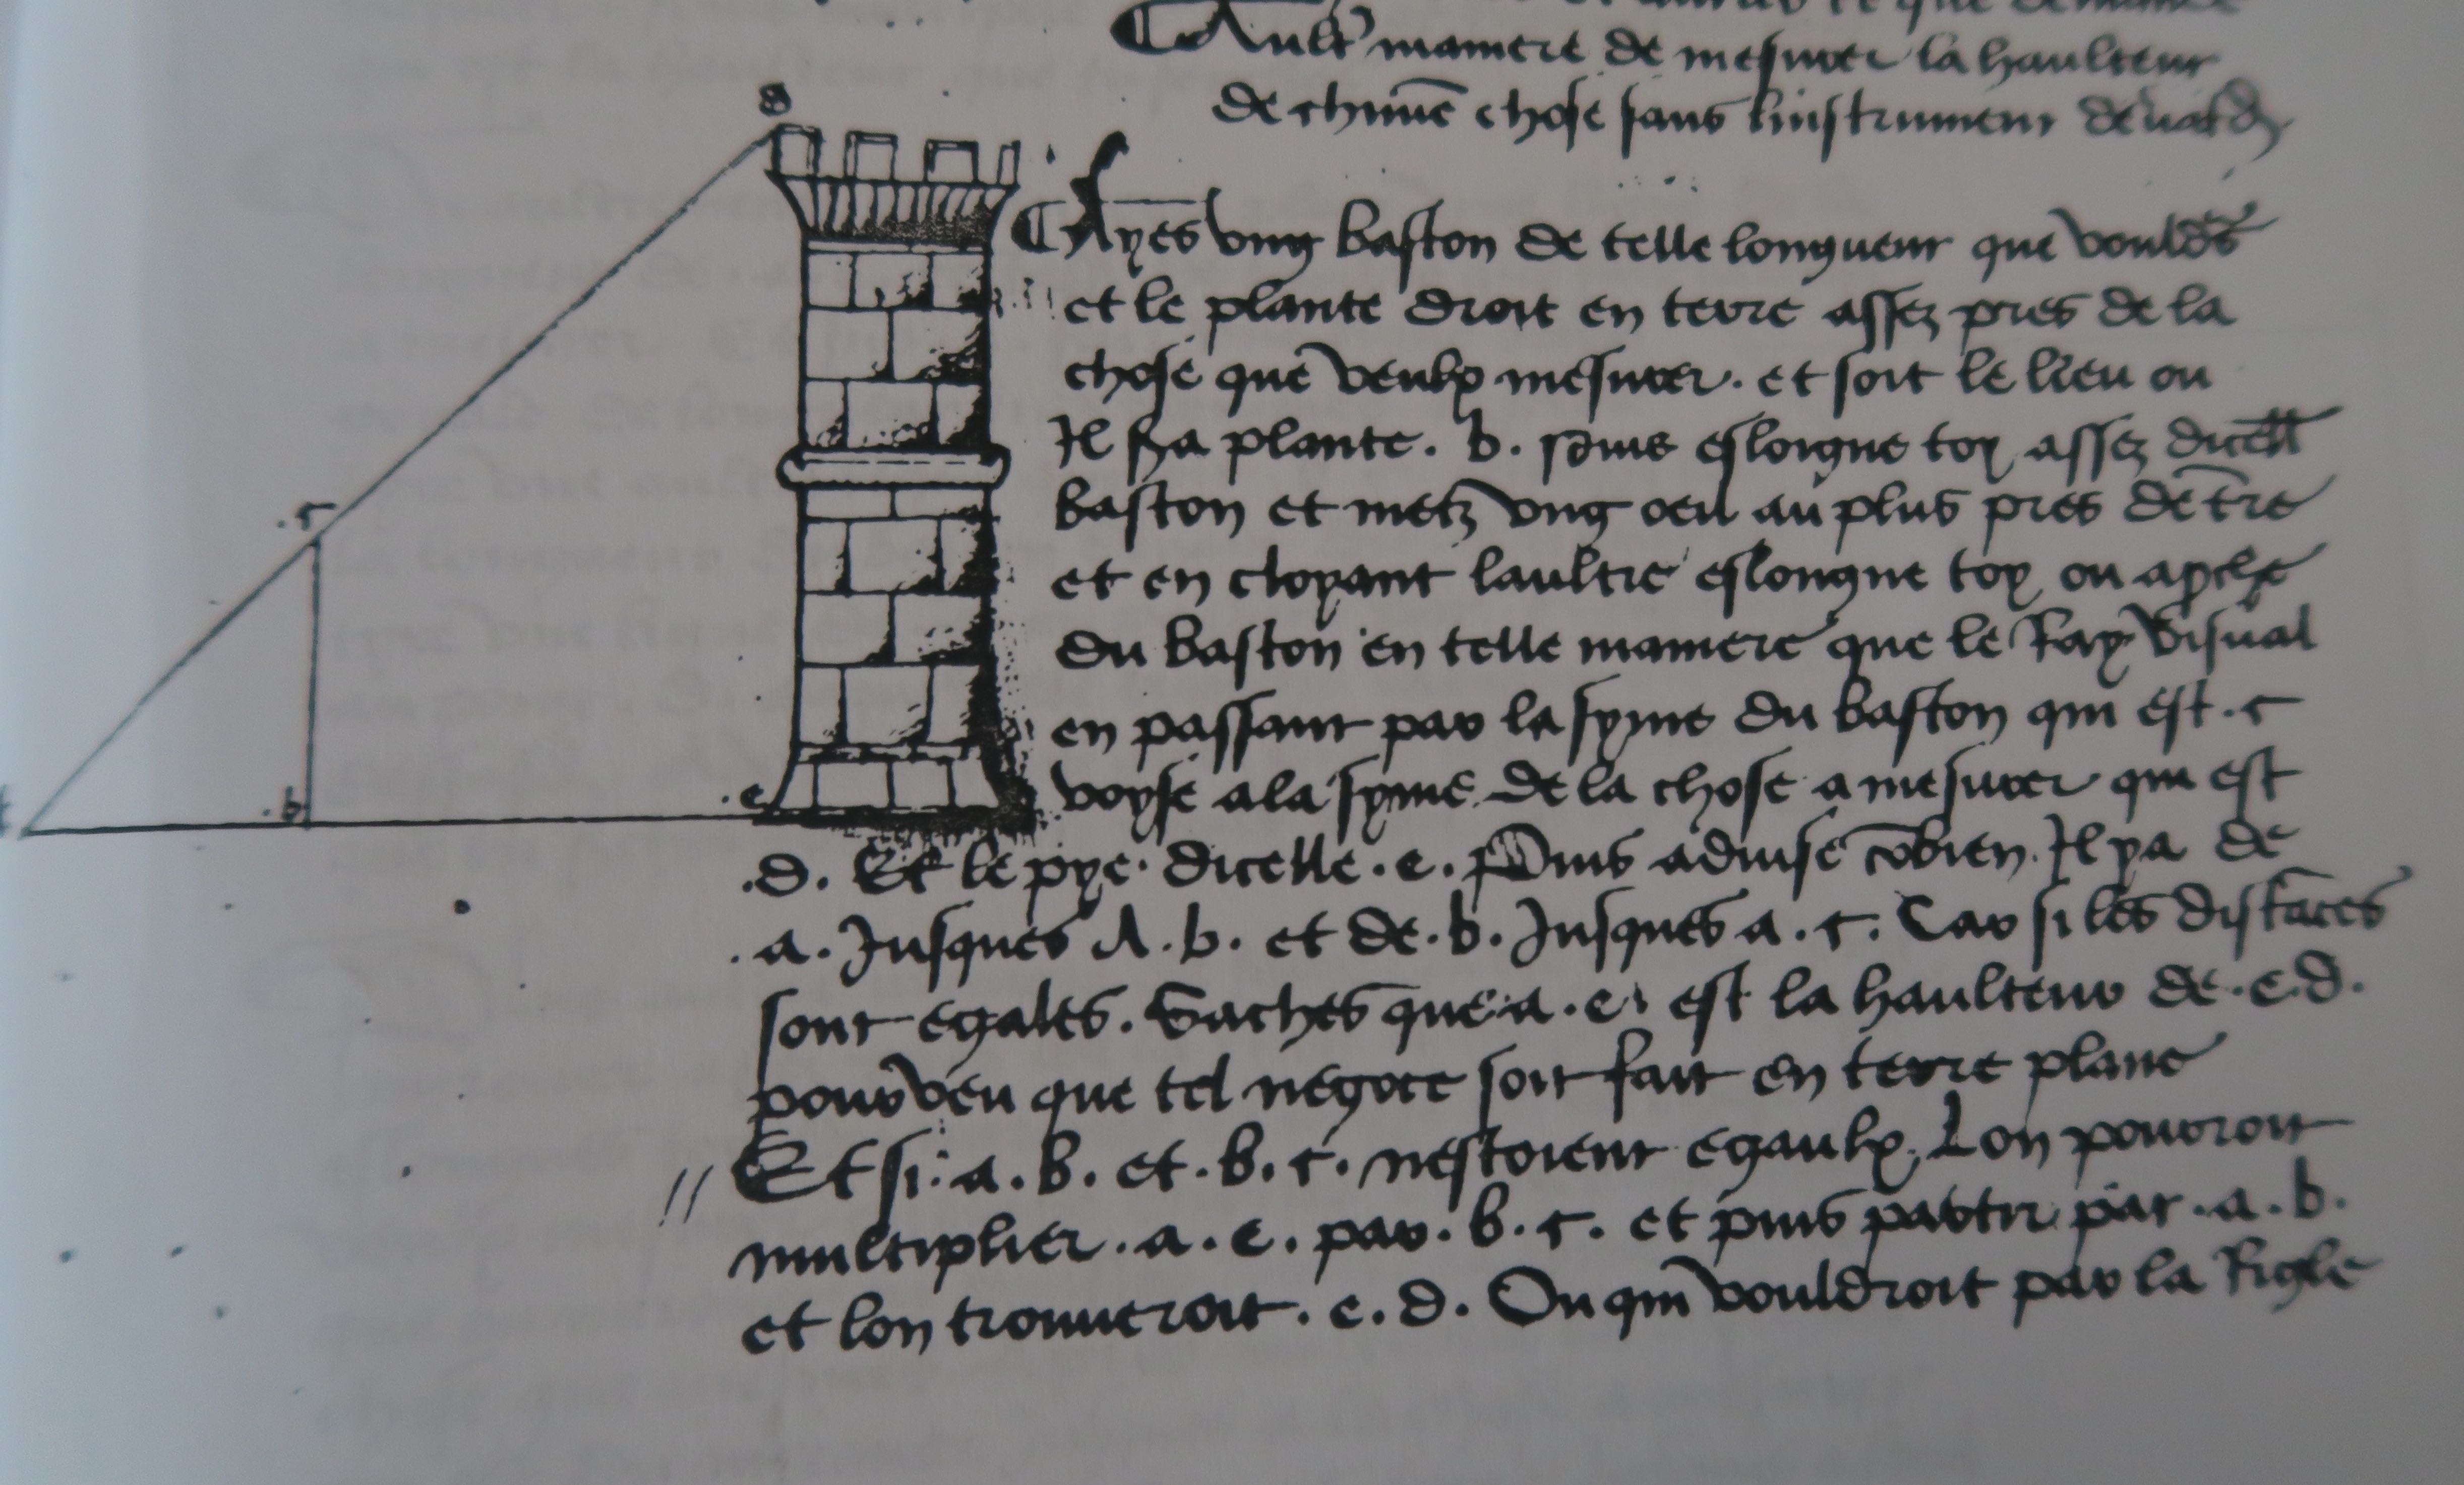 que demande
Aultre maniere de mesurer la haulteur
de chūne chose sans linstrument
Ayes vng baston de telle longueur que vouldrs
et le plante droit en terre assez pres de la
chose que veulx mesurer. et soit le lieu ou
Il sera plante . b . puis eslongne toy assez dicell
baston et metz vng oeu au plus pres de tre
et en cloyant laultre eslongne toy ou apche
du baston en telle maniere que le Ray visual
en passant par la syme du baston qui est . c
voyse a la syme de la chose a mesurer qui est
. d . Et le pye dicelle . e . Puis aduise cōbien Il y a de
. a . Jusques A . b . et de . b . Jusques a . c . Car si les distāces
sont egales . Saches que . a . e . est la haulteur de . e . d .
pourveu que tel negoce soit fait en terre plane
// Et si . a . b . et . b . c . nestoient egaulx . Lon pourroit
multiplier . a . e . par . b . c . et puis partir par . a . b .
et lon trouueroit . e . d . Ou qui vouldroit par la Rigle
d
. c
. b
. e